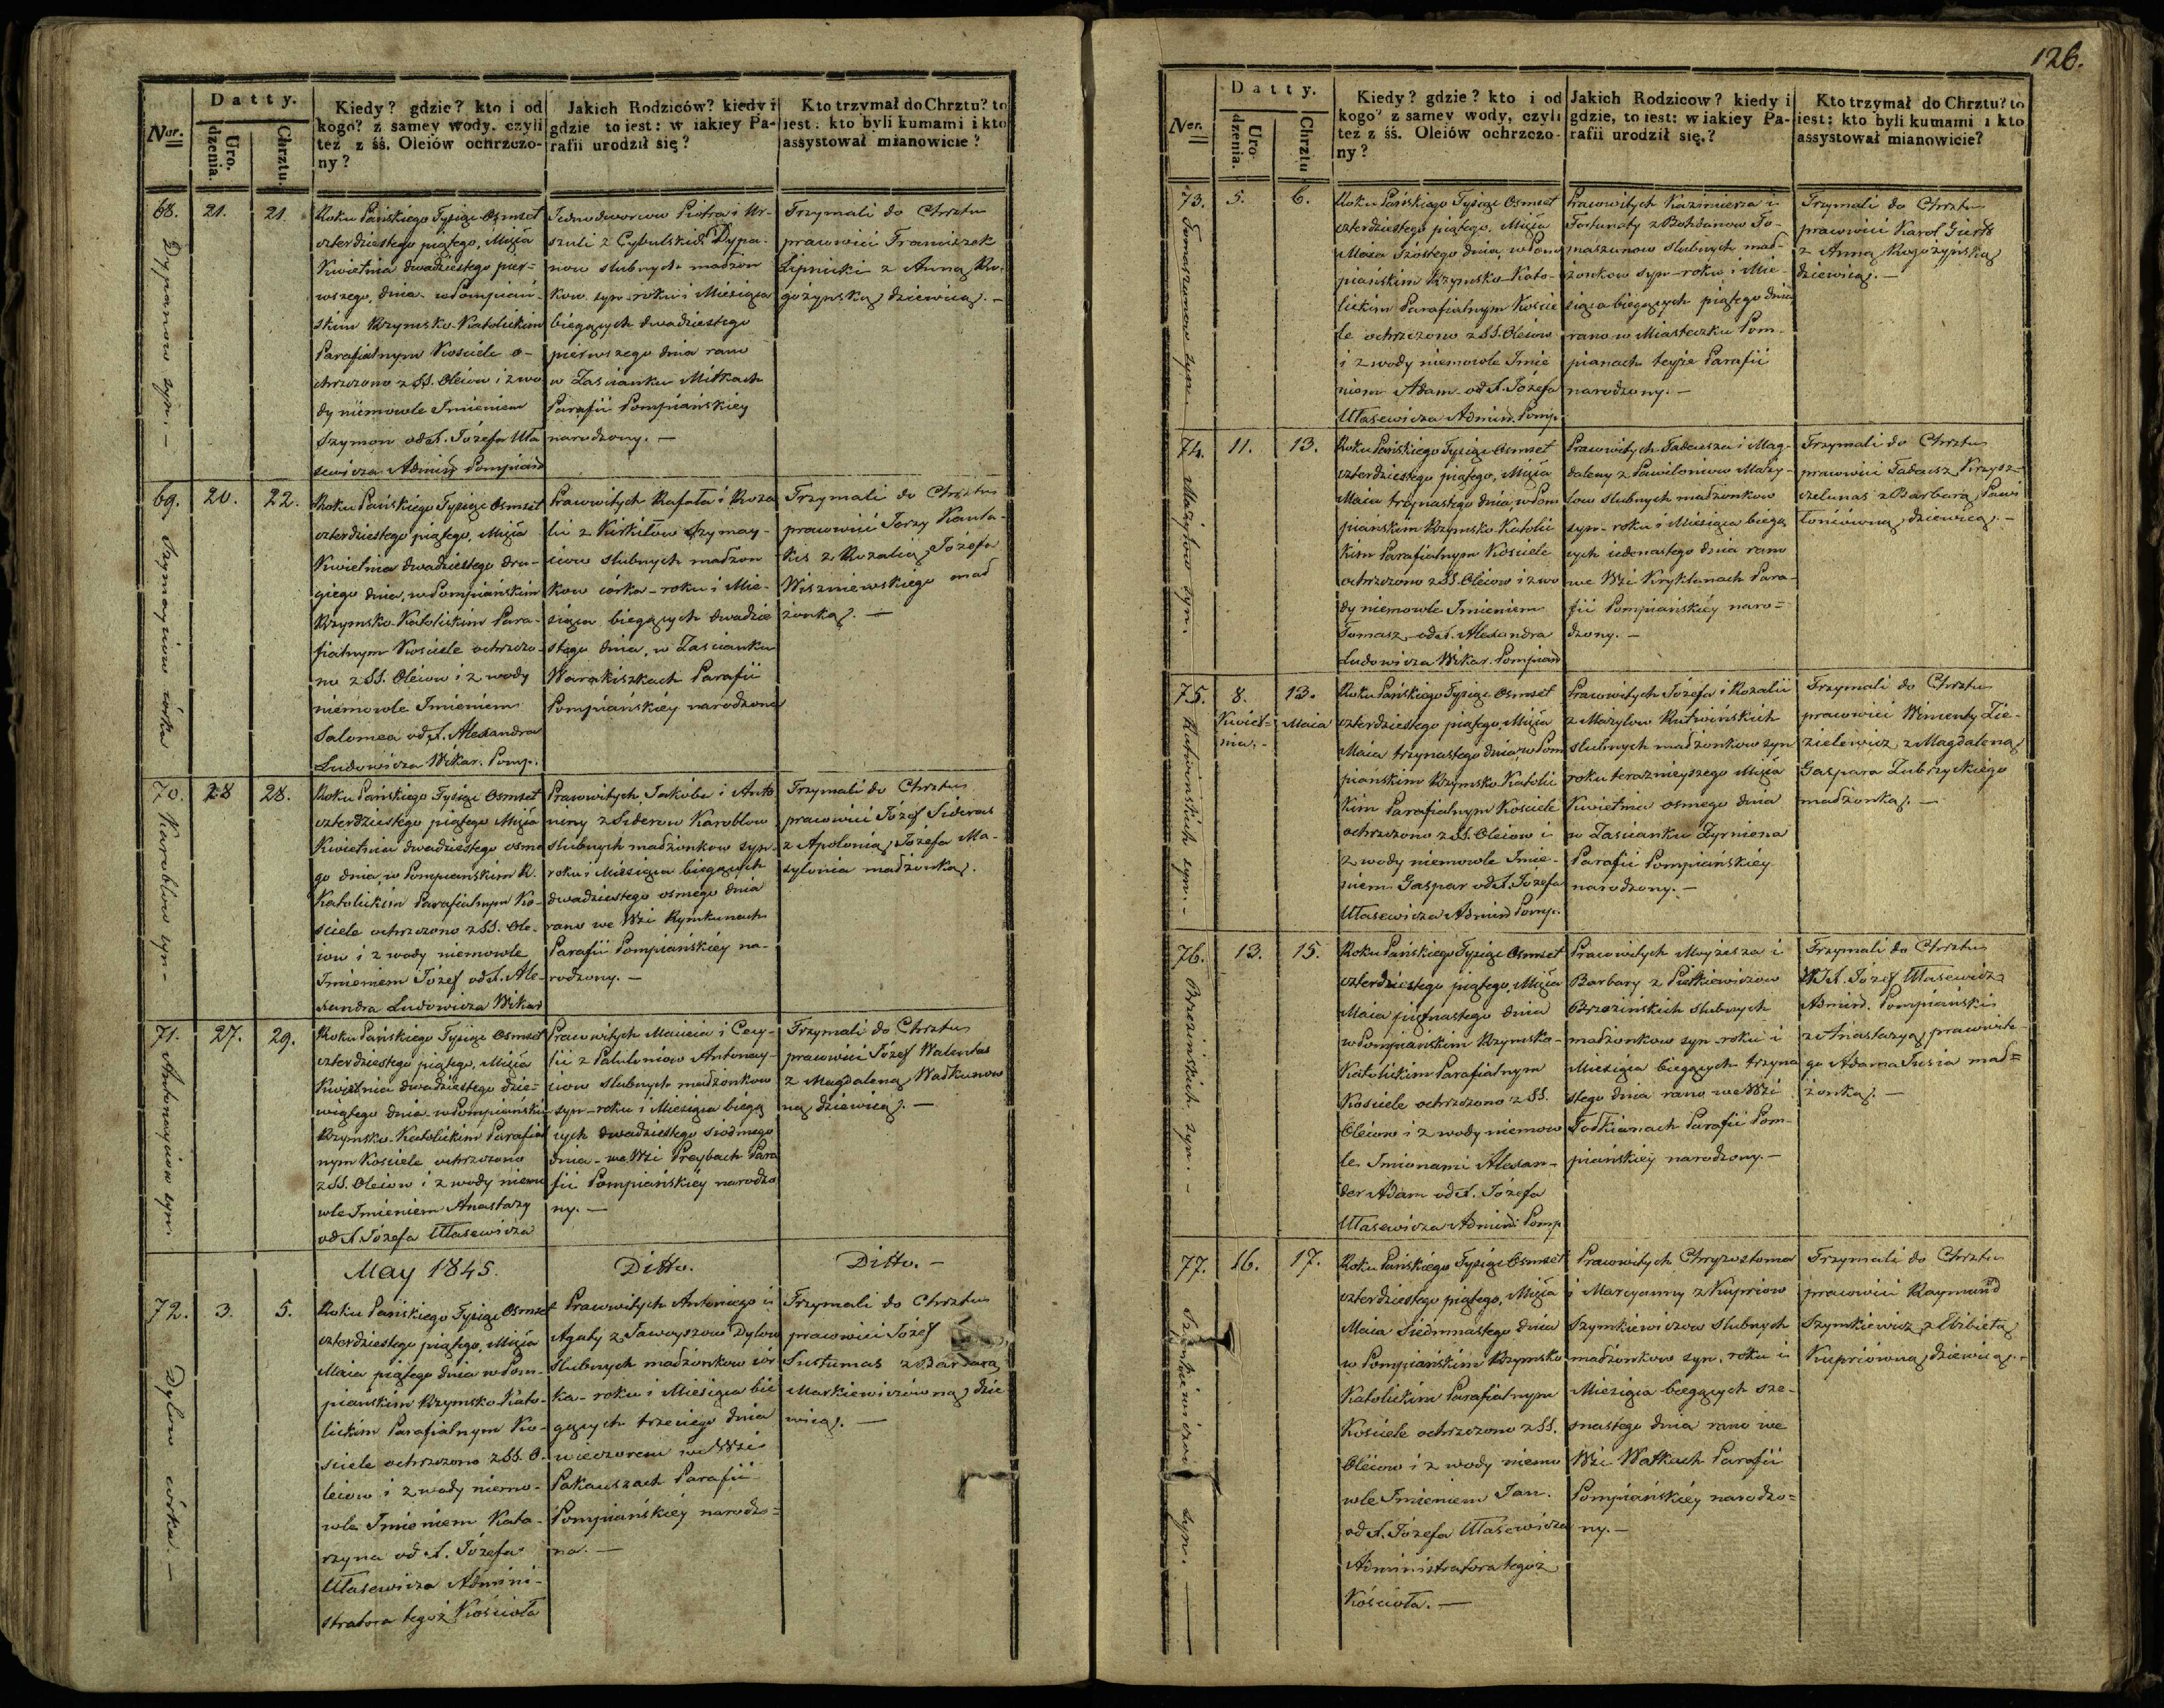 Ner.
Datty.
Uro.
dzenia.
Chrztu.
Kiedy? gdzie? kto i od
kogo? z samey wody, czyli
też z śś. Oleiów ochrzczo-
ny?
Jakich Rodziców? kiedy i
gdzie to iest: w iakiey Pa-
rafii urodził się?
Kto trzymał do Chrztu? to
iest: kto byli kumami i kto
assystował mianowicie?
68.
Dypanow syn. —
21.
21.
Roku Pańskiego Tysiąc Osmset
czterdziestego piątego, Mięsiąca
Kwietnia dwadziestego pier=
wszego, dnia w Pompiań-
skim Rzymsko-Katolickim
Parafialnym Kościele o-
chrzczono z SS. Oleiow i z wo
dy niemowle Imieniem
Szymon od X. Józefa Uła
sewicza Admin Pompiań
Jednodworcow Piotra i Ur-
szuli z Cybulskich Dypa-
now slubnych małżon
kow syn - roku i Miesiąca
biegących dwadziestego
pierwszego dnia rano
w Zascianku Mitkach
Parafii Pompiańskiey
narodzony. —
Trzymali do Chrztu
prawowici Franciszek
Lipnicki z Anną Ro-
gożynską dziewicą. —
69.
Szymayciow córka
20.
22.
Roku Pańskiego Tysiąc Osmset
czterdziestego piątego, Mięsiąca
Kwietnia dwadziestego dru-
giego dnia, w Pompiańskim
Rzymsko-Katolickim Para-
fialnym Kościele ochrzczo-
no z SS. Oleiow i z wody
niemowle Imieniem
Salomea od X. Alexandra
Ludowicza Wikar. Pomp.
Prawowitych Rafała i Roza
lii z Kirkiłow Szymay-
ciow slubnych małżon
kow córka - roku i Mie-
siąca biegących dwadzie
stego dnia, w Zascianku
Warakiszkach Parafii
Pompiańskiey narodzona
Trzymali do Chrztu
prawowici Jerzy Kanta-
kis z Rozalią Józefa
Wiszniewskiego mał
żonką. —
70.
Karoblow syn -
28
28.
Roku Pańskiego Tysiąc Osmset
czterdziestego piątego Mięsiąca
Kwietnia dwadziestego osme
go dnia, w Pompianskim R.
Katolickim Parafialnym Ko-
ściele ochrzczono z SS. Ole-
iow i z wody niemowle
Imieniem Józef od X. Ale-
xandra Ludowicza Wikar
Prawowitych Jakóba i Anto
niny z Siderow Karoblow
slubnych małżonkow syn -
roku i Miesiąca biegących
dwadziestego osmego dnia
rano we Wsi Rymkunach
Parafii Pompiańskiey na-
rodzony. —
Trzymali do Chrztu
prawowici Józef Sideras
z Apolonią Józefa Ma-
sylonia małżonką.
71.
Antonayciow syn.
27.
29.
Roku Pańskiego Tysiąc Osmset
czterdziestego piątego, Mięsiąca
Kwietnia dwadziestego dzie=
wiątego dnia w Pompiańskim
Rzymsko-Katolickim Parafial
nym Kościele ochrzczono
z SS. Oleiow i z wody niemo
wle Imieniem Anastazy
od X Józefa Ułasewicza
Prawowitych Macieia i Cecy-
lii z Paluloniow Antonay-
ciow slubnych małżonkow
syn - roku i Miesiąca biegą
cych dwadziestego siódmego
dnia - we Wsi Preybach Para
fii Pompiańskiey narodzo
ny. —
Trzymali do Chrztu
prawowici Józef Walentas
z Magdaleną Watkunow
ną dziewicą. —
May 1845.
Ditto.
Ditto. —
72.
Dylow córka. —
3.
5.
Roku Pańskiego Tysiąc Osmset
czterdziestego piątego, Mięsiąca
Maia piątego dnia w Pom-
pianskim Rzymsko-Kato-
lickim Parafialnym Ko-
ściele ochrzczono z SS. O-
leiow i z wody niemo-
wle Imieniem Kata-
rzyna od X. Józefa
Ułasewicza Admini-
stratora tegoż Kościoła
Prawowitych Antoniego i
Agaty z Jawoyszow Dylow
slubnych małżonkow cór
ka - roku i Miesiąca bie
gących trzeciego dnia
wieczorem we Wsi
Pakauszach Parafii
Pompiańskiey narodzo=
na. —
Trzymali do Chrztu
prawowici Józef
Sustumas z Barbarą
Markiewiczówną dzie
wicą. —
126.
Ner.
Datty.
Uro
dzenia.
Chrztu
Kiedy? gdzie? kto i od
kogo? z samey wody, czyli
też z śś. Oleiów ochrzczo-
ny?
Jakich Rodzicow? kiedy i
gdzie, to iest: w iakiey Pa-
rafii urodził się,?
Kto trzymał do Chrztu? to
iest: kto byli kumami i kto
assystował mianowicie?
73.
Tomaszunow syn -
5.
6.
Roku Pańskiego Tysiąc Osmset
czterdziestego piątego, Mięsiąca
Maia Szóstego dnia, w Pom
piańskim Rzymsko-Kato-
lickim Parafialnym Koscie
le ochrzczono z SS. Oleiow
i z wody niemowle Imie
niem Adam - od X. Józefa
Ułasewicza Admin. Pomp.
Prawowitych Kazimierza i
Fortunaty z Bohdanow To-
maszunow slubnych mał-
żonkow syn - roku i Mie-
siąca biegących piątego dnia
rano w Miasteczku Pom-
pianach teyże Parafii
narodzony. —
Trzymali do Chrztu
prawowici Karol Giedł
z Anną Rogożyńską
dziewicą. —
74.
Mażylow syn.
11.
13.
Roku Pańskiego Tysiąc Osmset
czterdziestego piątego, Mięsiąca
Maia trzynastego dnia, w Pom
piańskim Rzymsko Katolic
kim Parafialnym Kościele
ochrzczono z SS. Oleiow i z wo
dy niemowle Imieniem
Tomasz - od X. Alexandra
Ludowicza Wikar. Pompiań
Prawowitych Tadeusza i Mag-
daleny z Pawiloniow Maży-
low slubnych małżonkow
syn - roku i Miesiąca biegą
cych iedenastego dnia rano
we Wsi Kryklanach Para-
fii Pompiańskiey naro=
dzony. —
Trzymali do Chrztu
prawowici Tadeusz Krzysz=
czelunas z Barbarą Pawi
łoniówną dziewicą. —
75.
Rutwińskich syn. -
8.
Kwiet=
nia. -
13.
Maia
Roku Pańskiego Tysiąc Osmset
czterdziestego piątego, Mięsiąca
Maia trzynastego dnia, w Pom
piańskim Rzymsko Katolic
kim Parafialnym Kościele
ochrzczono z SS. Oleiow i
z wody niemowle Imie-
niem Gaspar od X. Józefa
Ułasewicza Admin Pomp.
Prawowitych Józefa i Rozalii
z Mażylow Rutwińskich
slubnych małżonkow syn
roku terażnieyszego Mięsiąca
Kwietnia osmego dnia
w Zascianku Żyrniena
Parafii Pompiańskiey
narodzony. —
Trzymali do Chrztu
prawowici Wincenty Zie-
zielewicz z Magdaleną
Gaspara Zubrzyckiego
małżonką. —
76.
Brzezińskich syn. -
13.
15.
Roku Pańskiego Tysiąc Osmset
czterdziestego piątego, Mięsiąca
Maia piętnastego dnia
w Pompiańskim Rzymsko-
Katolickim Parafialnym
Kościele ochrzczono z SS.
Oleiow i z wody niemow
le Imionami Alexan-
der Adam od X. Józefa
Ułasewicza Admin: Pomp
Prawowitych Moyżesza i
Barbary z Pietkiewiczow
Brzezińskich slubnych
małżonkow syn - roku i
Miesiąca biegących trzyna
stego dnia rano we Wsi
Todkianach Parafii Pom-
piańskiey narodzony. —
Trzymali do Chrztu
WJX. Józef Ułasewicz
Admin. Pompiański
z Anastazyą prawowite-
go Adama Susia mał=
żonką. —
77.
Szymkiewiczow syn. —
16.
17.
Roku Pańskiego Tysiąc Osmset
czterdziestego piątego, Mięsiąca
Maia Siedmnastego dnia
w Pompiańskim Rzymsko
Katolickim Parafialnym
Kościele ochrzczono z SS.
Oleiow i z wody niemo
wle Imieniem Jan.
od X. Józefa Ułasewicza
Administratora tegoż
Kościoła. —
Prawowitych Chryzostoma
i Maryanny z Kupriow
Szymkiewiczow slubnych
małżonkow syn, roku i
Miesiąca biegących sze-
snastego dnia rano we
Wsi Watkach Parafii
Pompiańskiey narodzo=
ny. —
Trzymali do Chrztu
prawowici Raymund
Szymkiewicz z Elżbietą
Kupriówną dziewicą. -